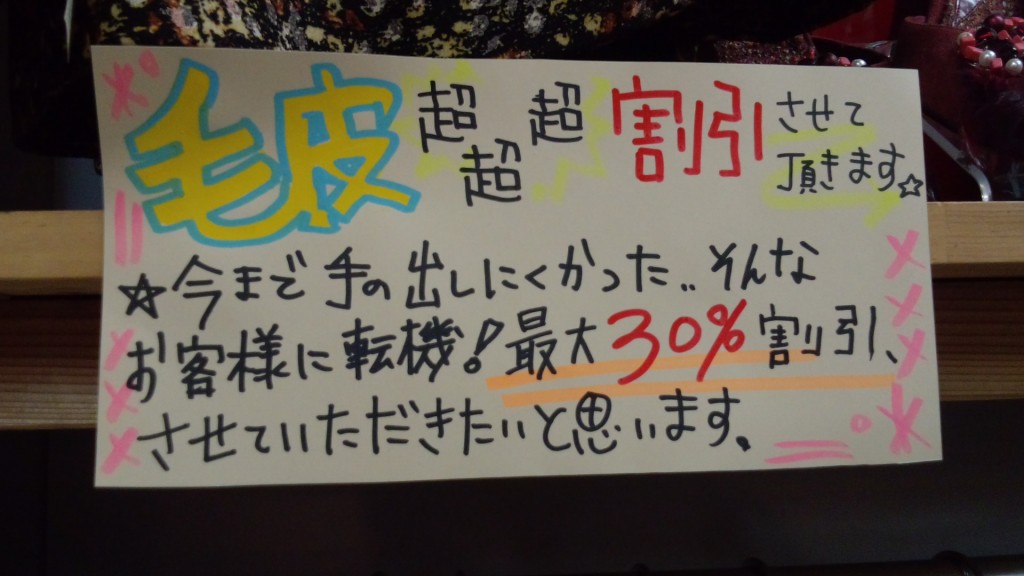 毛皮超超超割引させて
頂きます☆
☆今まで手の出しにくかった..そんな
お客様に転機!最大30%割引、
させていただきたいと思います。